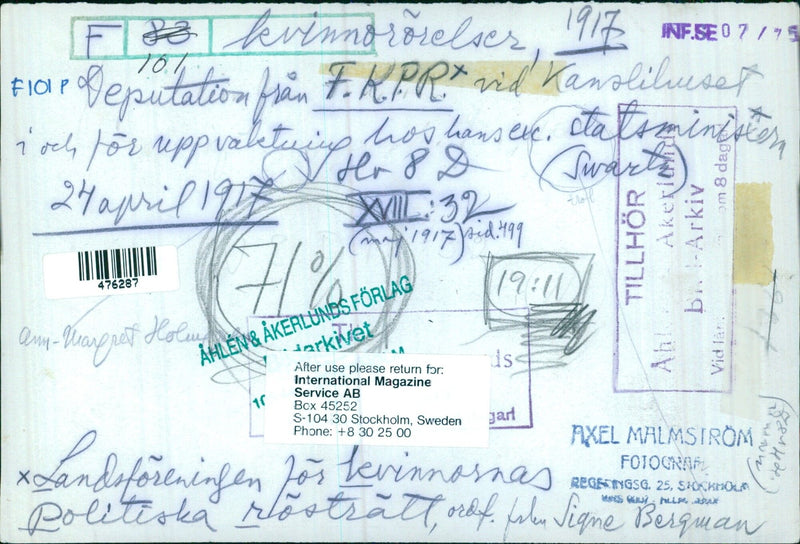 F 83 kvinnorörelser, 1917
INF.SE 07/75
101
F101P
Deputation från F.K.P.R.x vid Kanslihuset
i och för uppvaktning hos hans exc. statsministern
(Swartz)
24 april 1917
Hv 8 D
XVIII:32
(maj 1917) sid. 499
71%
19:11
476287
TILLHÖR
Bild-Arkiv
om 8 dag
Ann-Margret
ÅHLÉN & ÅKERLUNDS FÖRLAG
After use please return for:
International Magazine
Service AB
Box 45252
S-104 30 Stockholm, Sweden
Phone: +8 30 25 00
AXEL MALMSTRÖM
FOTOGRAF
REGERINGSG. 25, STOCKHOLM
x Landsföreningen för kvinnornas
Politiska rösträtt, ordf. frkn Signe Bergman